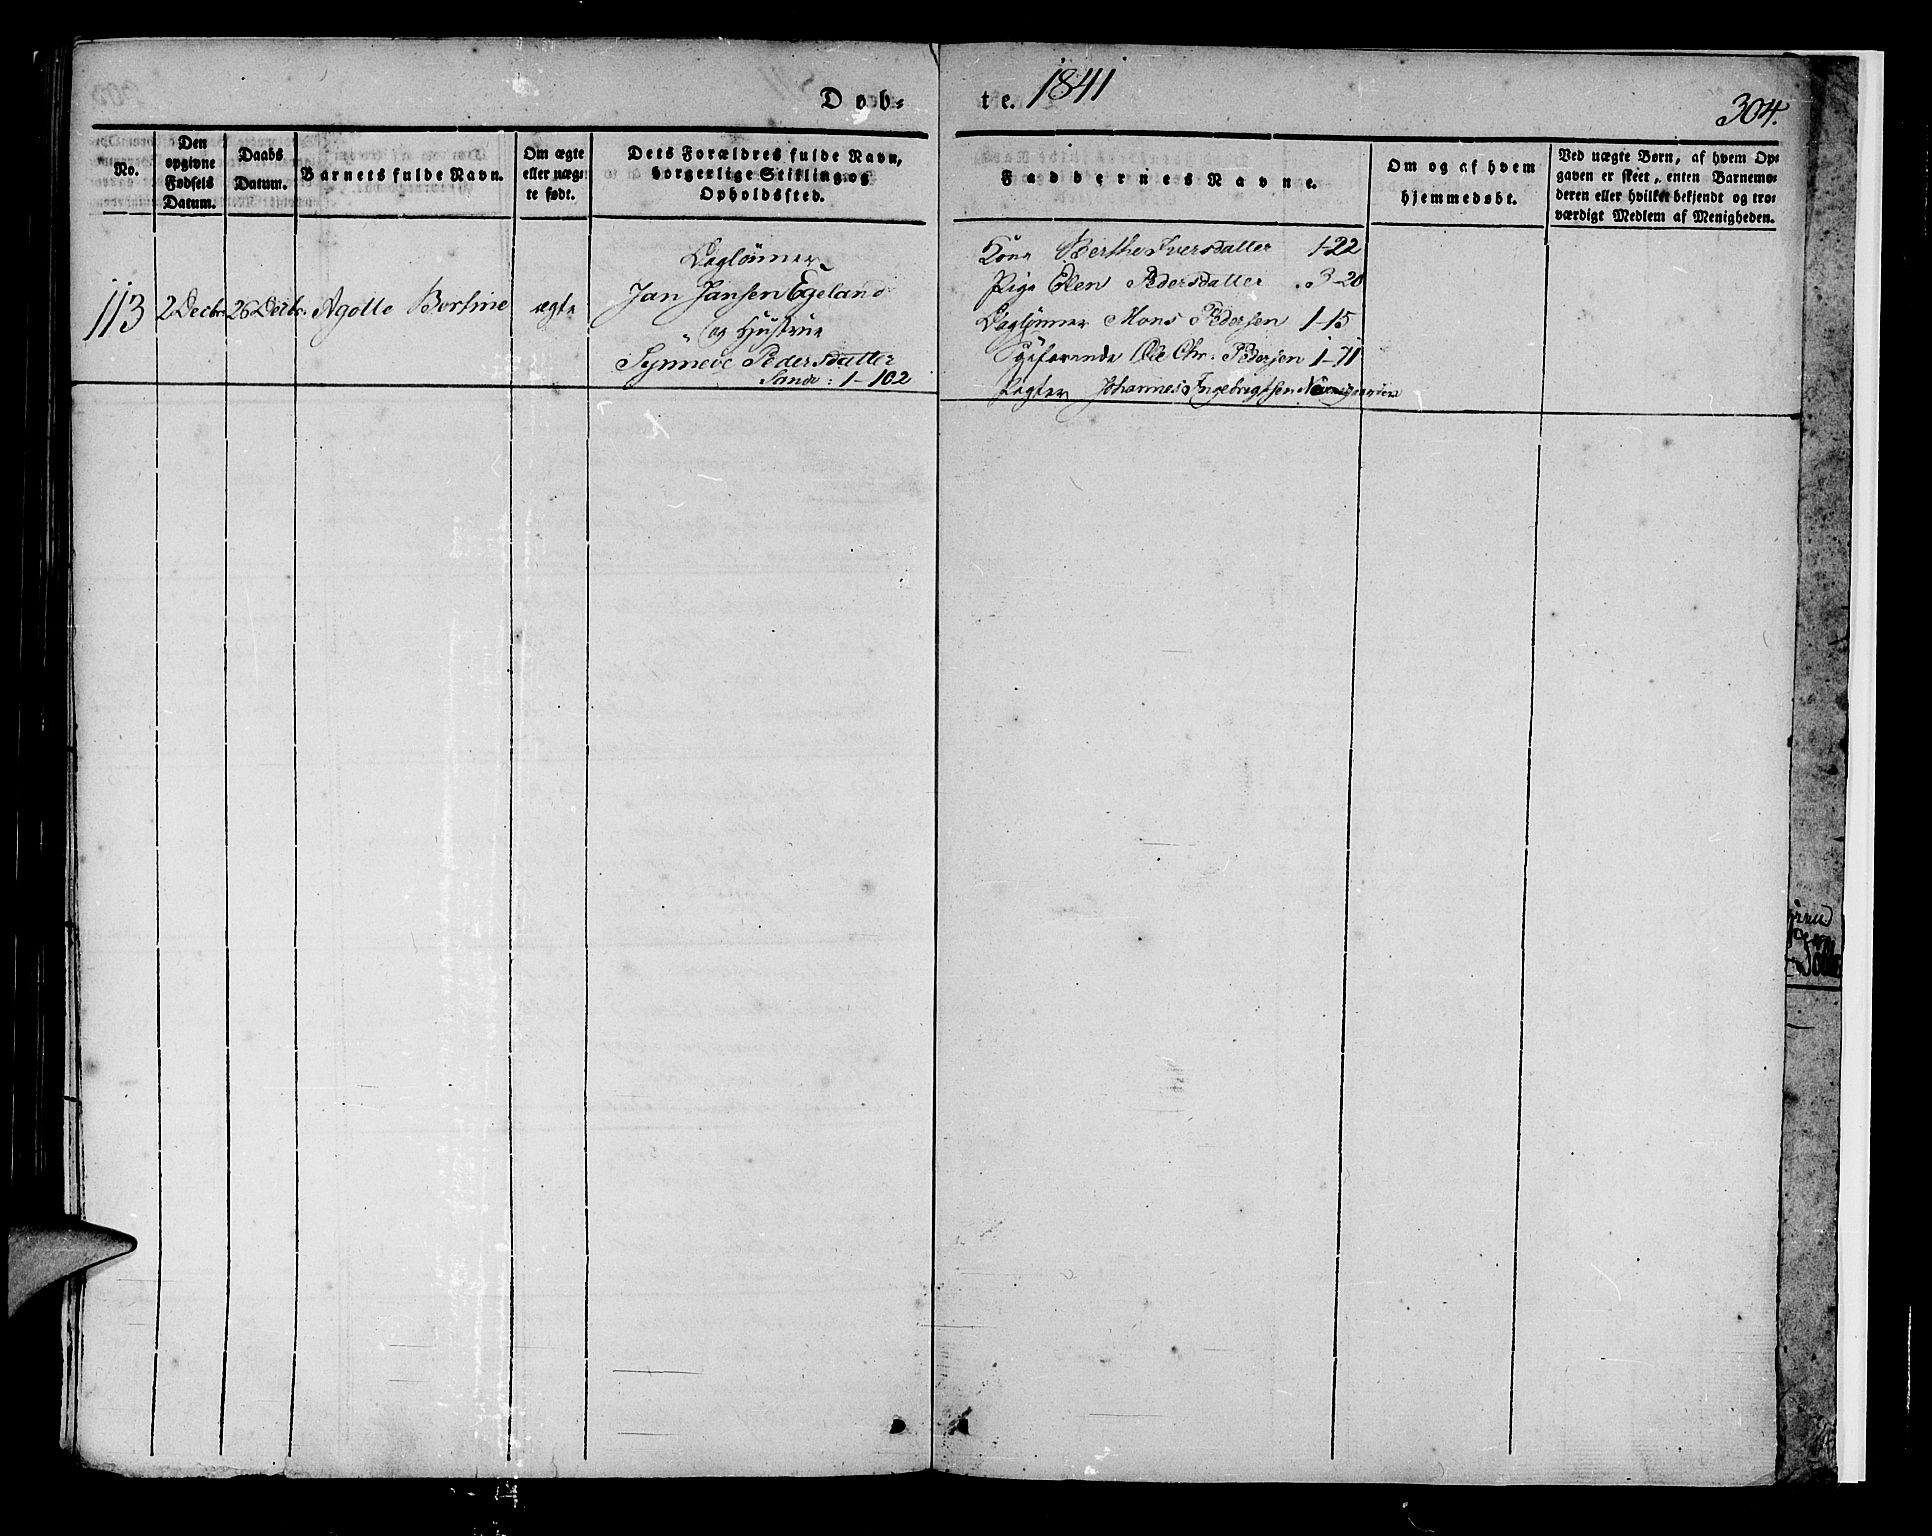 Døb-
te. 1841
304.
No.
Den opgivne Fødsels Datum.
Daabs Datum.
Barnets fulde Navn.
Om ægte eller uægte født.
Dets Forældres fulde Navn, borgerlige Stilling og Opholdssted.
Faddernes Navne.
Om og af hvem hjemmedøbt.
Ved uægte Børn, af hvem Op-
gaven er skeet, enten Barnemo-
deren eller hvilket bekjendt og tro-
værdigt Medlem af Menigheden.
113
2 Decbr.
26 Decbr.
Agotte Bertine
ægte
Daglønner
Jan Jansen Egeland
og Hustrue
Synneve Pedersdatter
Sande: 1-102
Kone Berthe Iversdatter 1-22
Pige Elen Pedersdatter 3-20
Daglønner Mons Pedersen 1-15
Søfarende Ole Chr. Pedersen 1-71
Johannes Ingebregtsen